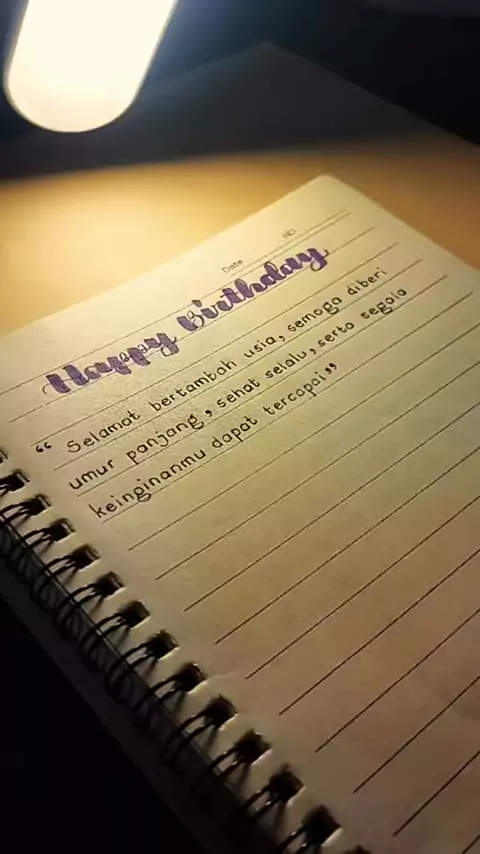 Date
NO
Happy Birthday
“ Selamat bertambah usia, semoga diberi
umur panjang, sehat selalu, serta segala
keinginanmu dapat tercapai”